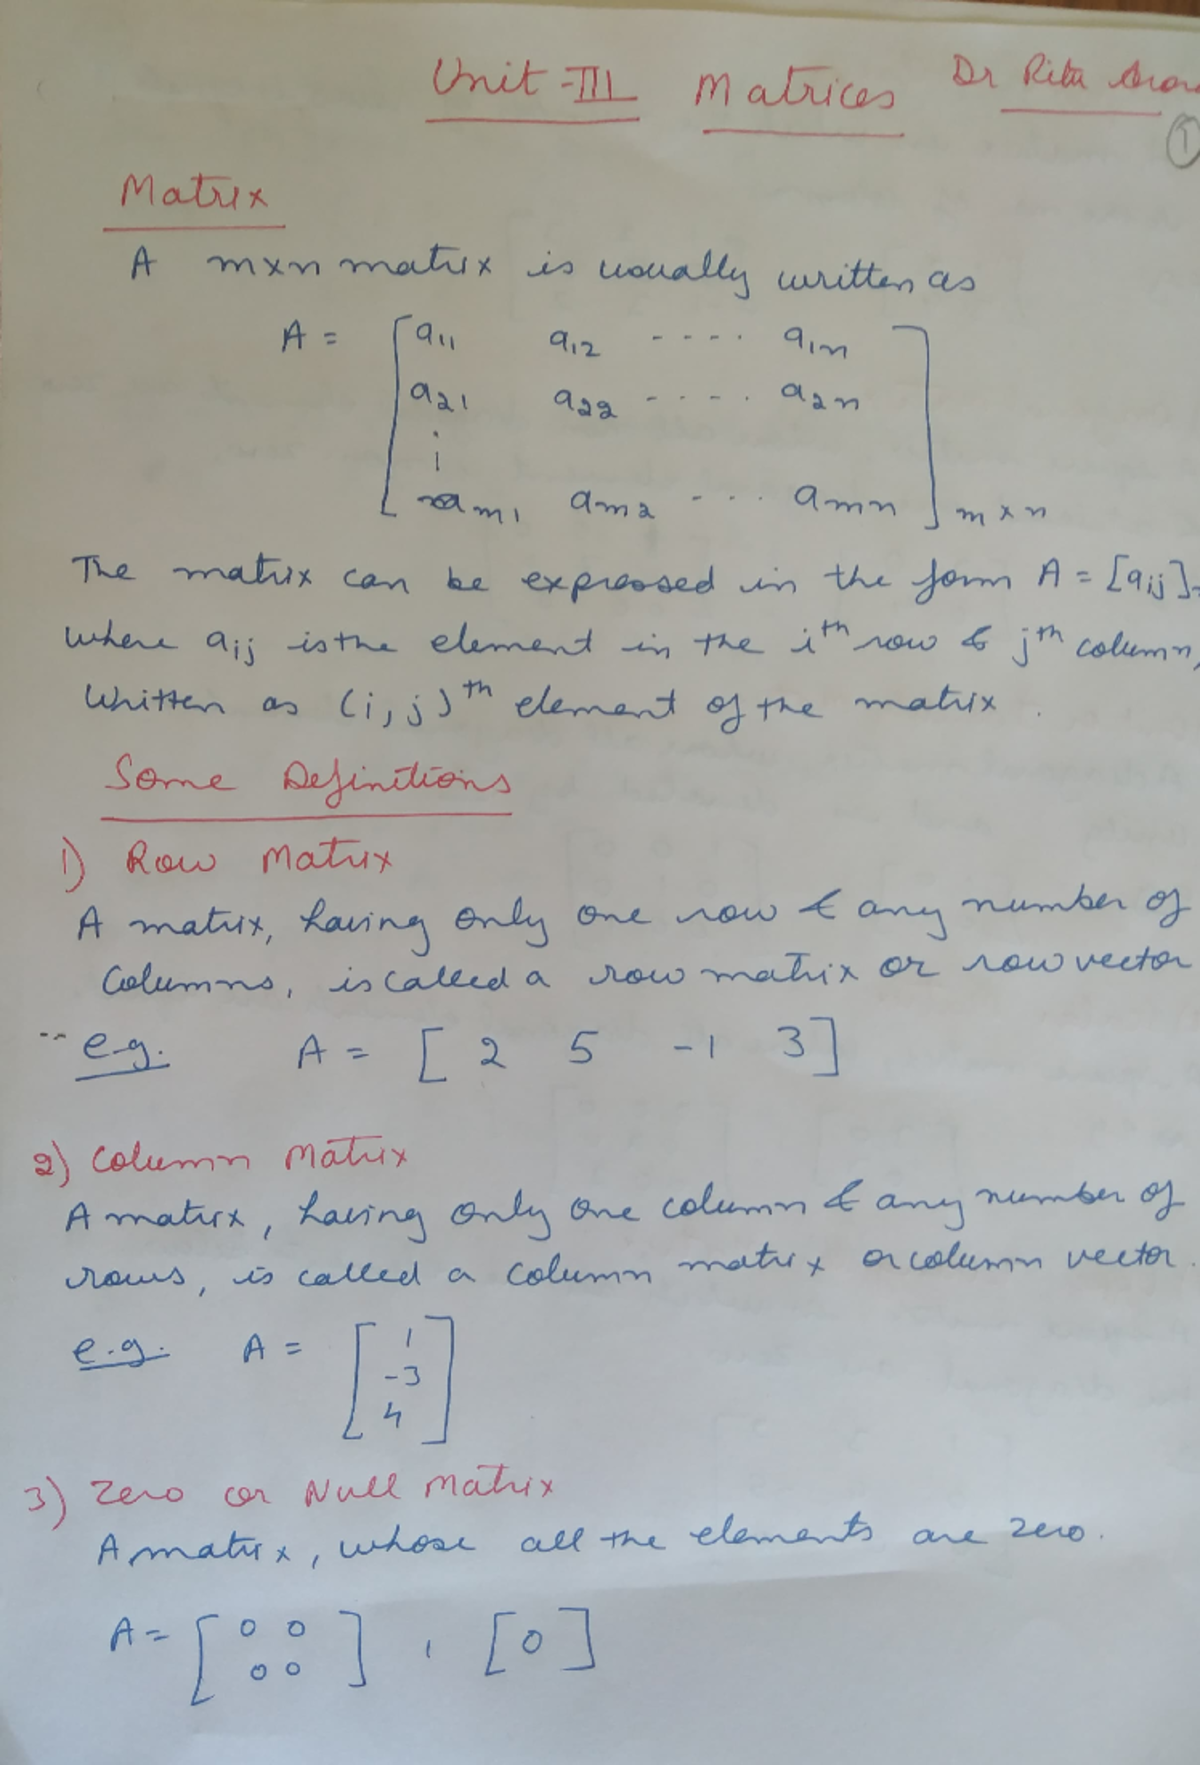 Unit-III Matrices Dr Rita
1
Matrix
A m×n matrix is usually written as
A = [ a11 a12 ---- a1n
a21 a22 ---- a2n
⋮
am1 am2 --- amn ] m×n
The matrix can be expressed in the form A = [aij]
where aij is the element in the ith row & jth column,
Written as (i,j)th element of the matrix.
Some Definitions
1) Row Matrix
A matrix, having only one row & any number of
Columns, is called a row matrix or row vector
e.g. A = [ 2 5 -1 3 ]
2) Column Matrix
A matrix, having only one column & any number of
rows, is called a column matrix or column vector.
e.g. A = [ 1
-3
4 ]
3) Zero or Null Matrix
A matrix, whose all the elements are zero.
A = [ 0 0
0 0 ] , [ 0 ]